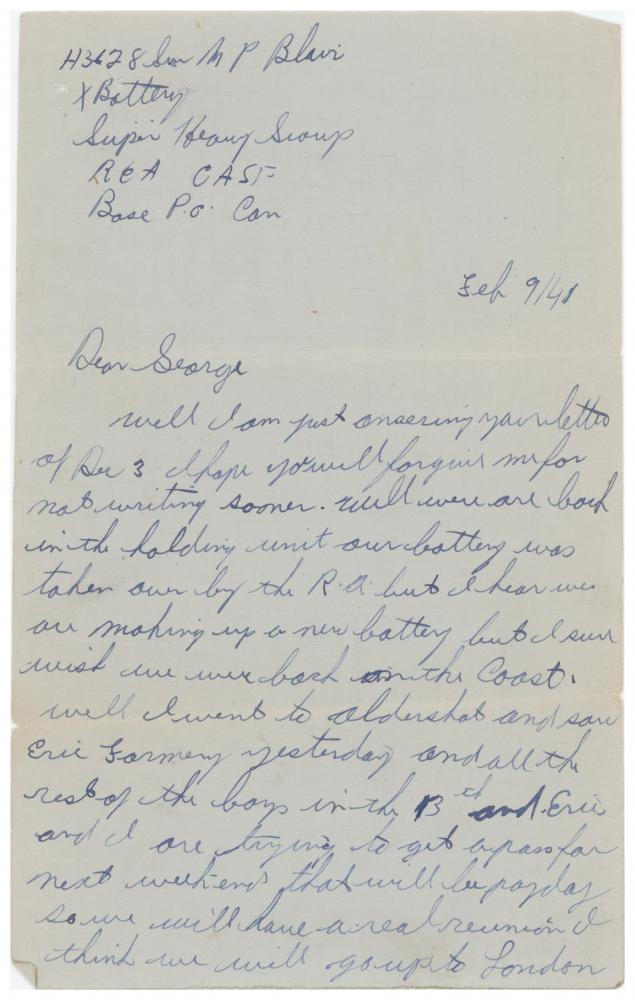 H3628 Gnr M P Blair
X Battery
Super Heavy Group
RCA CASF
Base P.O. Can
Feb 9/41
Dear George
well I am just ansering your letter
of Dec 3 I hope you will forgive me for
not writing sooner. well were are back
in the holding unit our battery was
taken over by the R.A. but I hear we
are making up a new battery but I sure
wish we were back on the Coast.
well I went to aldershot and saw
Eric Formery yesterday and all the
rest of the boys in the 13th and Eric
and I are trying to get a pass for
next weekend that will be payday
so we will have a real reunion I
think we will go up to London